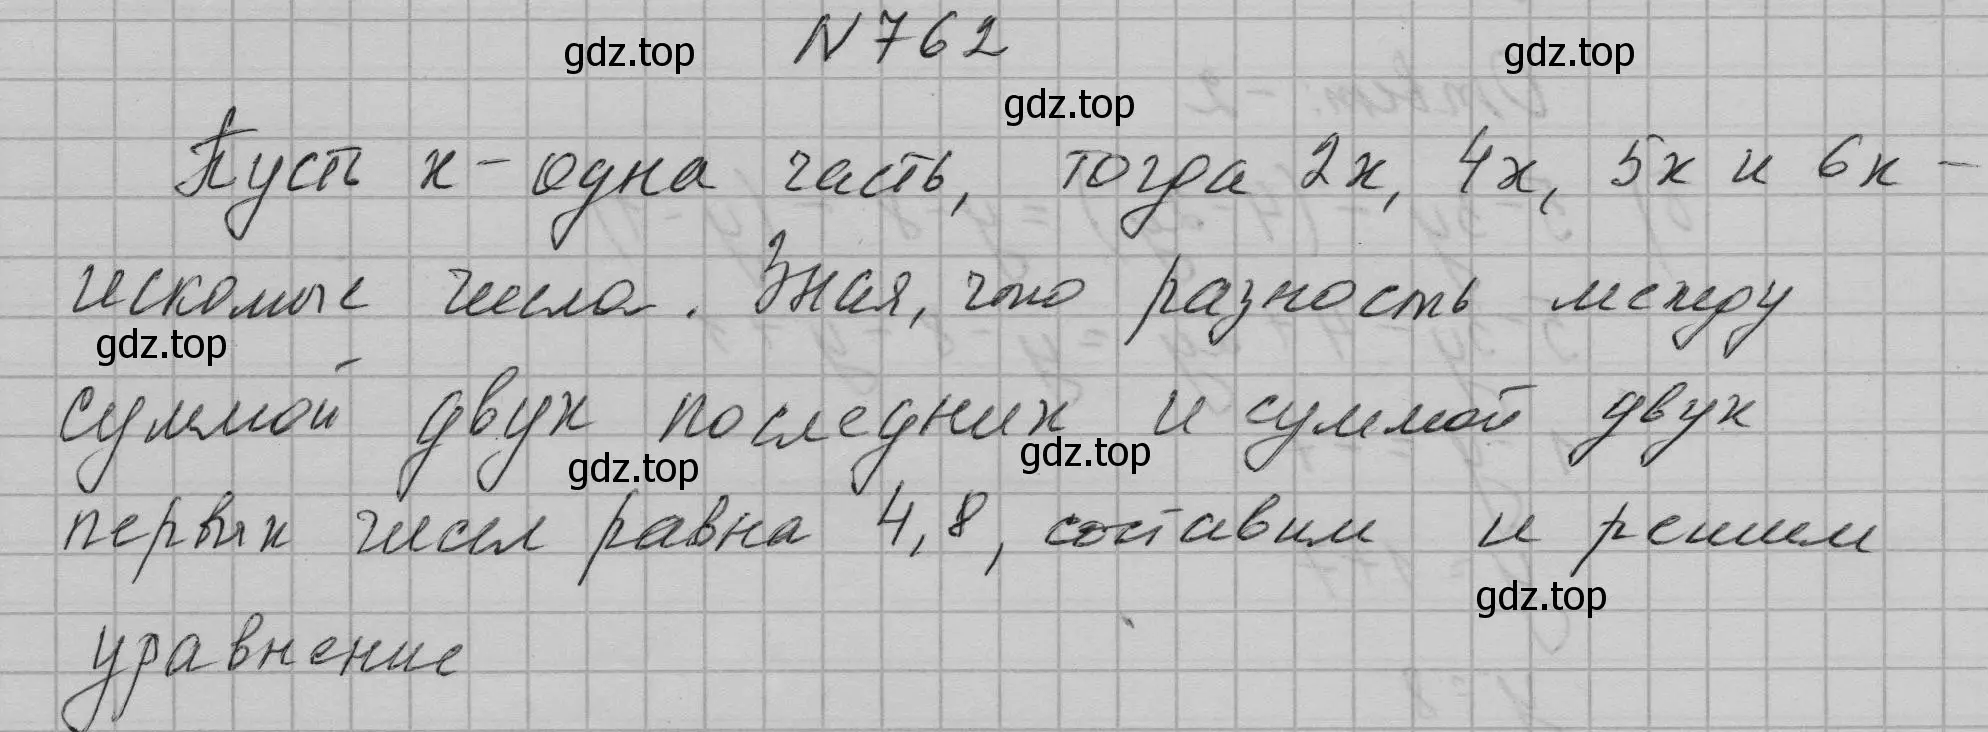 N 762
Пусть x - одна часть, тогда 2x, 4x, 5x и 6x -
искомые числа. Зная, что разность между
суммой двух последних и суммой двух
первых чисел равна 4,8, составим и решим
уравнение
gdz.top
gdz.top
gdz.top
gdz.top
gdz.top
gdz.top
gdz.top